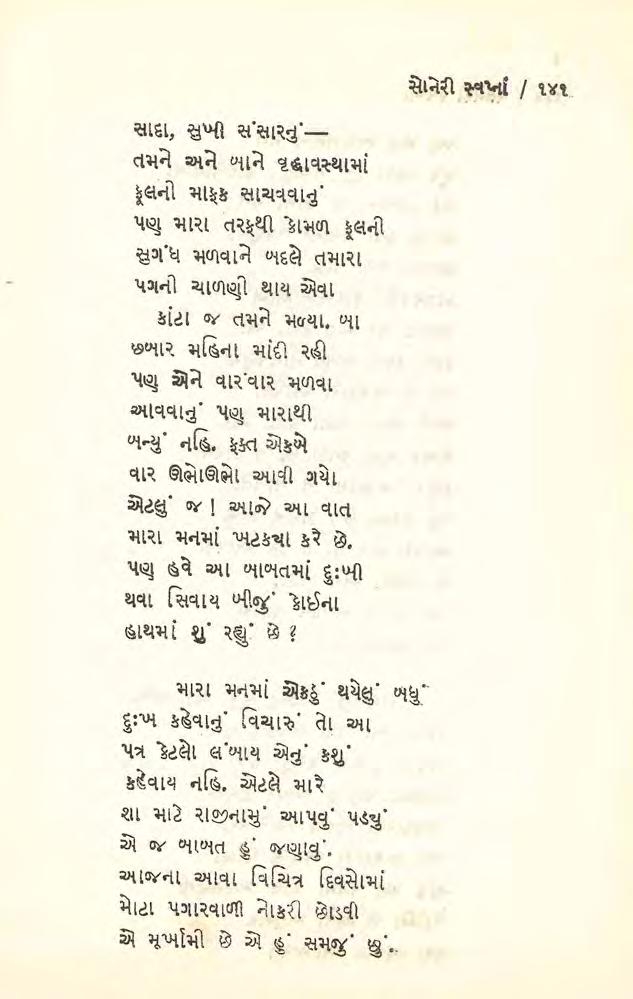 સોનેરી સ્વપ્નાં / ૧૪૧
સાદા, સુખી સંસારનું—
તમને અને બાને વૃદ્ધાવસ્થામાં
ફૂલની માફક સાચવવાનું
પણ મારા તરફથી કોમળ ફૂલની
સુગંધ મળવાને બદલે તમારા
પગની ચાળણી થાય એવા
કાંટા જ તમને મળ્યા. બા
છબાર મહિના માંદી રહી
પણ એને વારંવાર મળવા
આવવાનું પણ મારાથી
બન્યું નહિ. ફક્ત એકબે
વાર ઊભોઊભો આવી ગયો
એટલું જ ! આજે આ વાત
મારા મનમાં ખટક્યા કરે છે.
પણ હવે આ બાબતમાં દુઃખી
થવા સિવાય બીજું કોઈના
હાથમાં શું રહ્યું છે ?
મારા મનમાં એકઠું થયેલું બધું
દુઃખ કહેવાનું વિચારું તો આ
પત્ર કેટલો લંબાય એનું કશું
કહેવાય નહિ. એટલે મારે
શા માટે રાજીનામું આપવું પડ્યું
એ જ બાબત હું જણાવું.
આજના આવા વિચિત્ર દિવસોમાં
મોટા પગારવાળી નોકરી છોડવી
એ મૂર્ખામી છે એ હું સમજું છું.